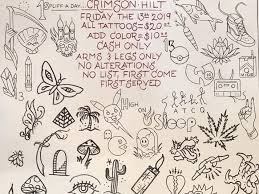 SPLIFF A DAY...
CRIMSON HILT
FRIDAY THE 13TH 2019
ALL TATTOOS=$20.00
ADD COLOR=$10.00
CASH ONLY
ARMS & LEGS ONLY
NO ALTERATIONS
NO LIST, FIRST COME
FIRST SERVED
13
HIGH
ON
SLEEP
ATCQ